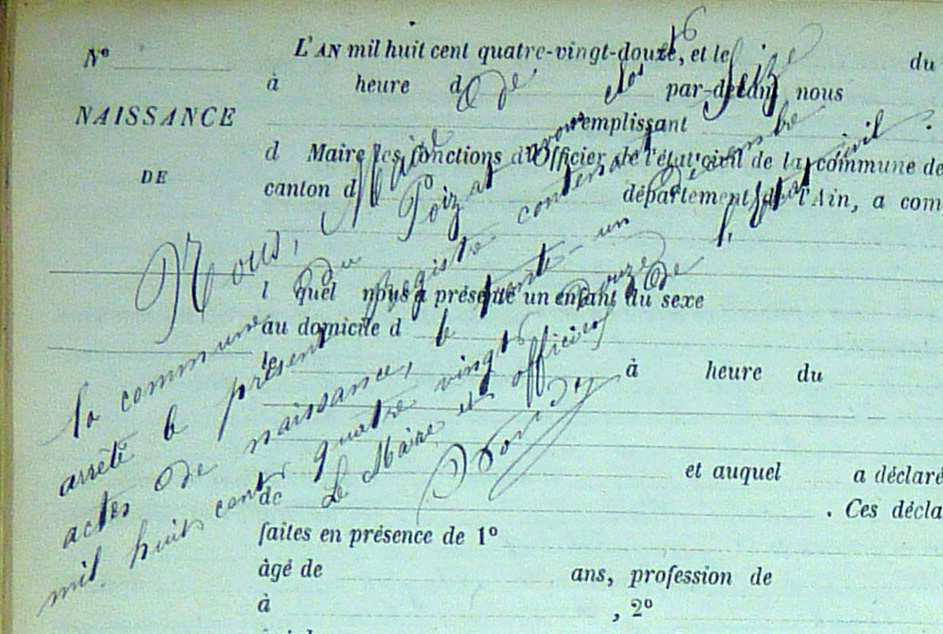 N°
NAISSANCE
DE
L'AN mil huit cent quatre-vingt-douze, et le du
à heure d par-devant nous
remplissant
d Maire les fonctions d'Officier de l'état civil de la commune de
canton d département de l'Ain, a com
l quel nous a présenté un enfant du sexe
au domicile d
le
à heure du
et auquel a déclaré
de . Ces décla
faites en présence de 1°
âgé de ans, profession de
à , 2°
Nous, Maire de
la commune du Poizat avons clos
arrêté le présent registre contenant Seize
actes de naissance, le trente-un Décembre
mil huit cent quatre vingt Douze
Le Maire et officier de l'état civil.